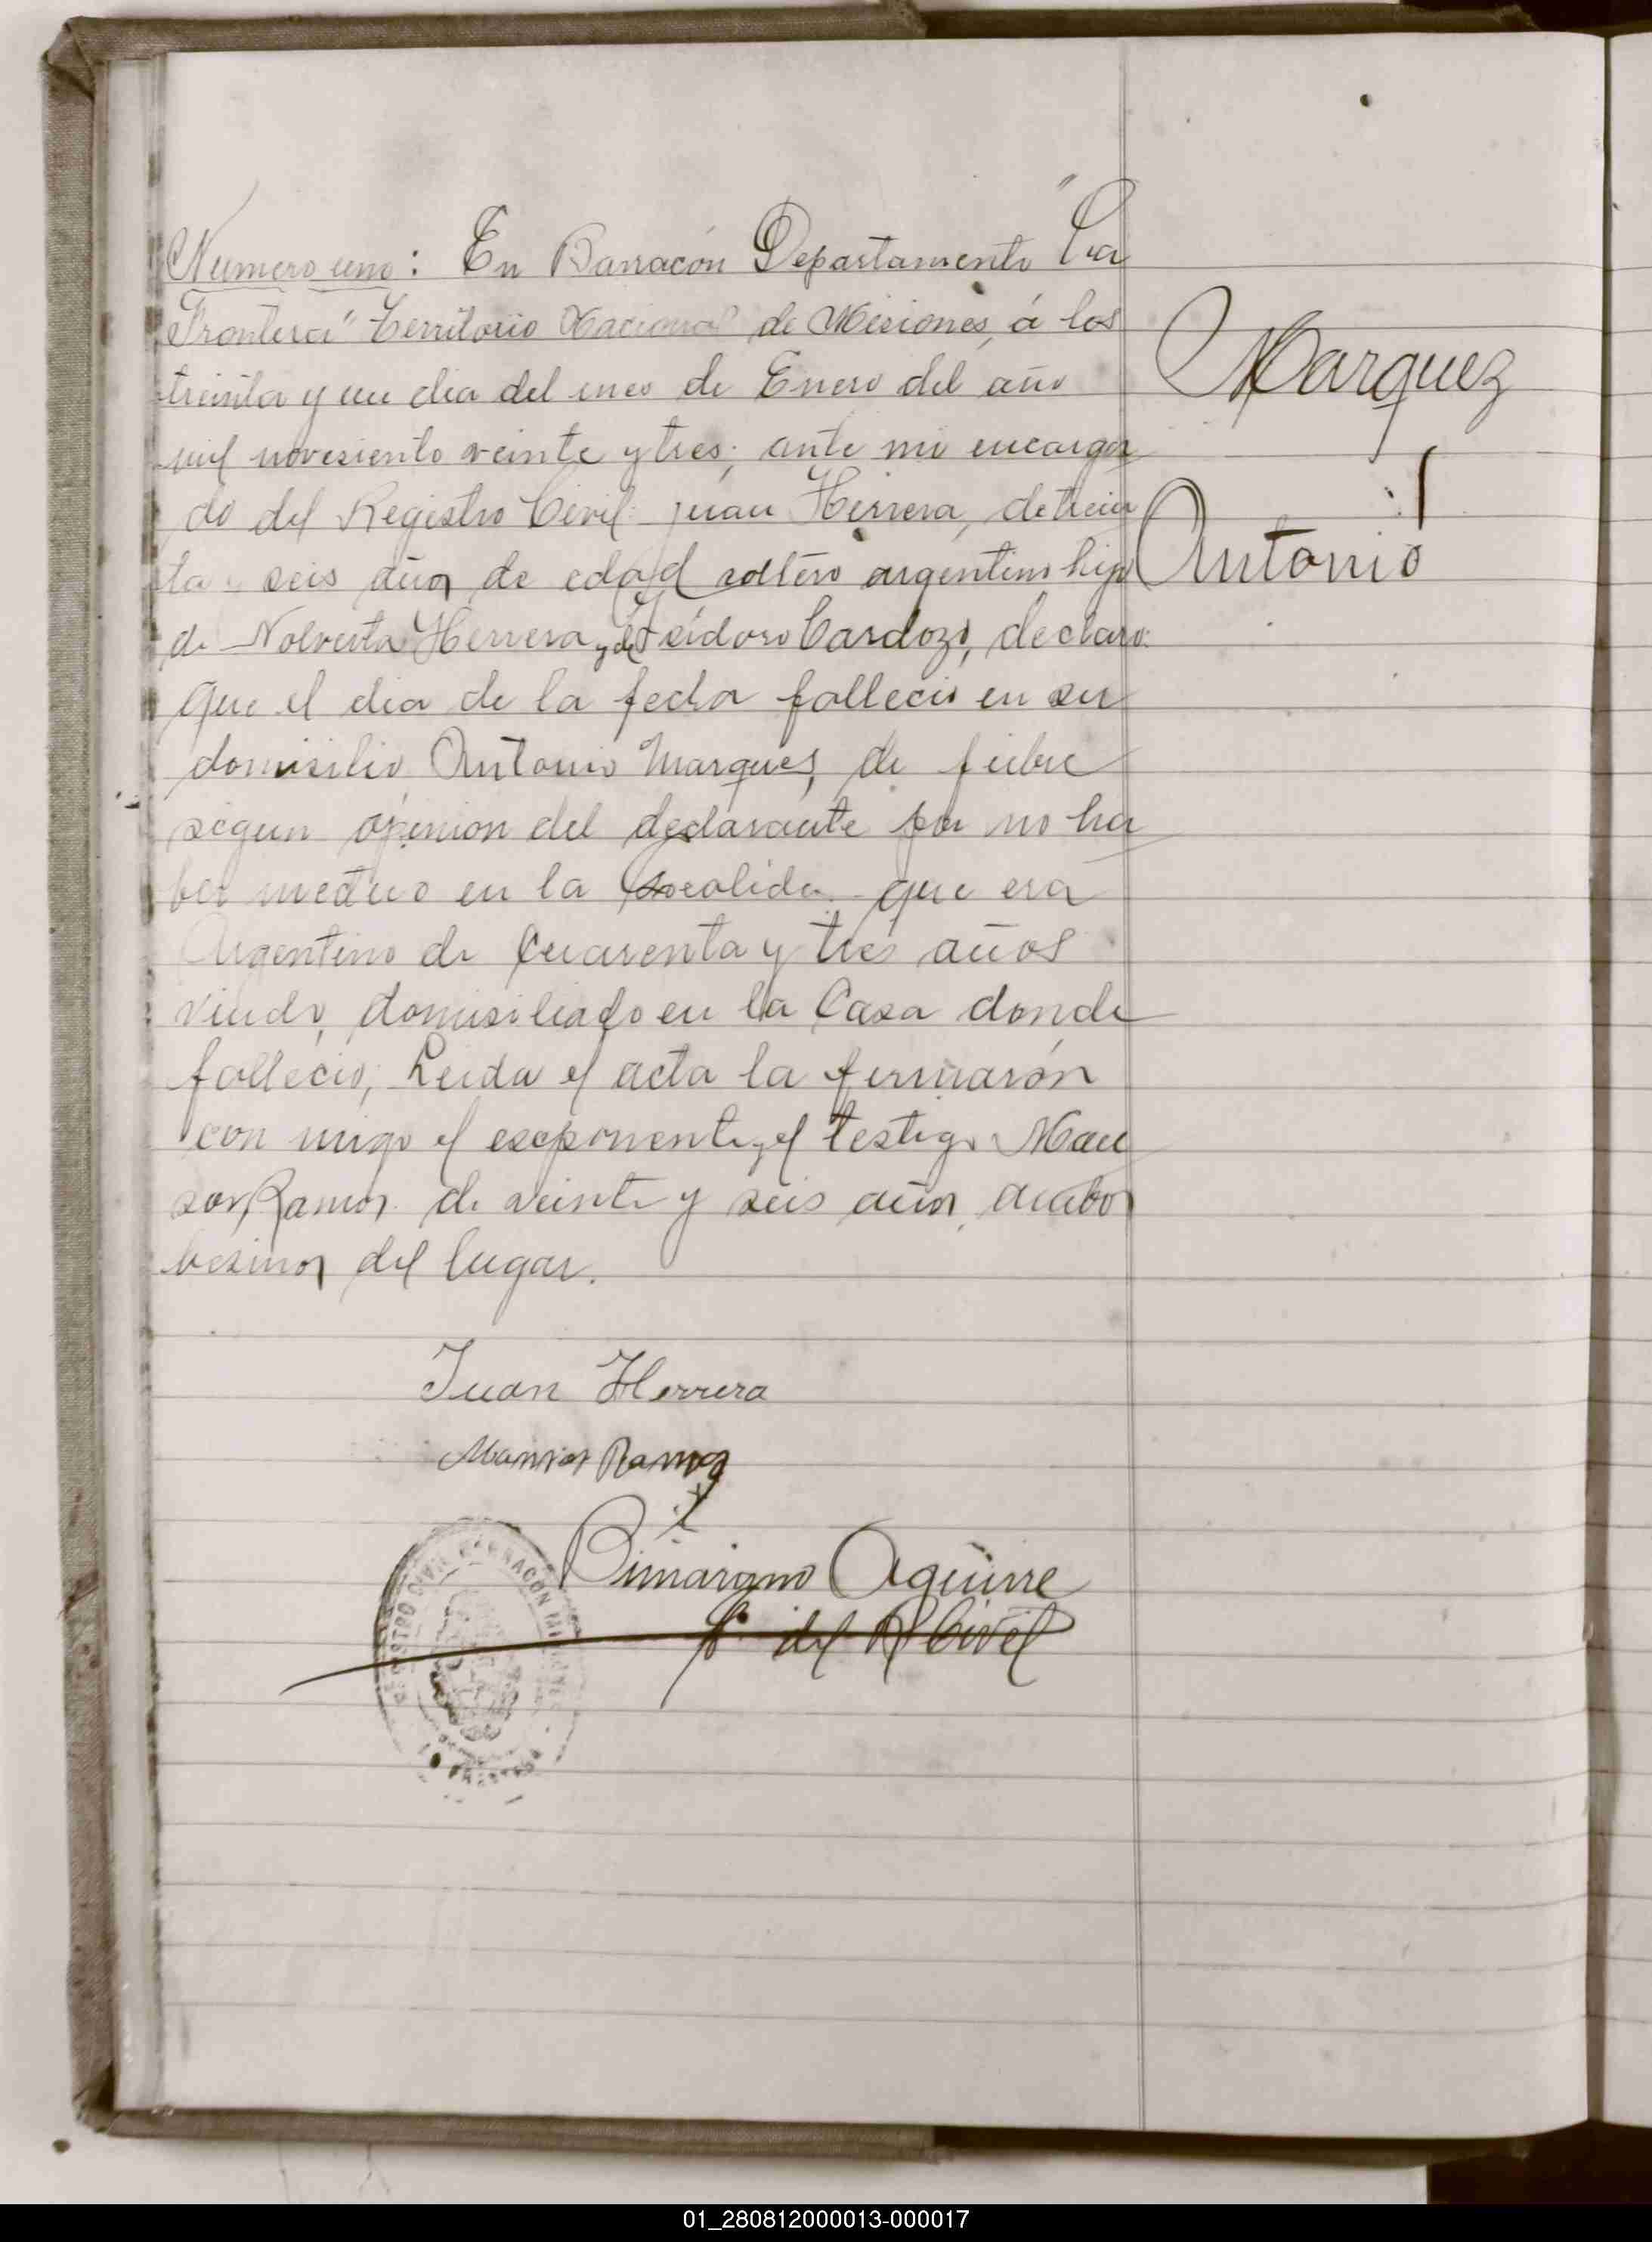 Numero uno: En Barracón Departamento "La
Frontera" Territorio Nacional de Misiones, á los
treinta y un dia del mes de Enero del año
mil novesiento veinte y tres; ante mi encarga
do del Registro Civil: juan Herrera, de trein
ta seis años de edad soltero argentino hijo
de Nolverta Herrera, y de Isidoro Cardozo, declaro:
que el dia de la fecha fallecio en su
domisilio Antonio Marques, de fiebre
segun opinion del declarante por no ha
ber medico en la localida que era
Argentino de Cuarenta y tres años
viudo, domisiliado en la Casa donde
fallecio; Leida el acta la firmarón
con migo el exsponente y el testigo
Ramos de veinte y seis años, anbos
besinos del lugar.
Marquez
Antonio
Juan Herrera
Ramos
Aguirre
del R Civil
REGISTRO CIVIL BARRACON MISIONES
01_280812000013-000017